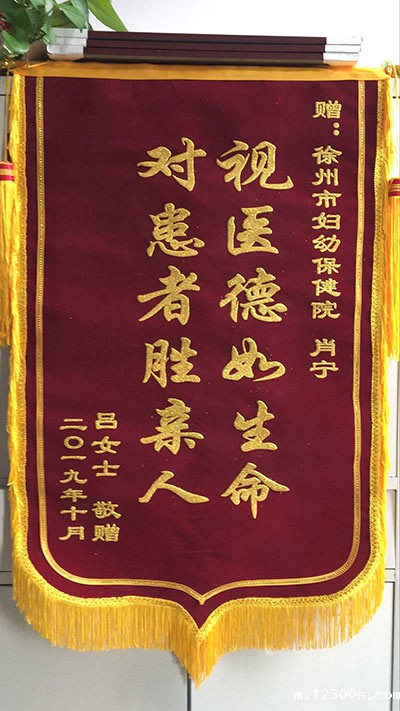 赠：徐州市妇幼保健院 肖宁
视医德如生命
对患者胜亲人
吕女士 敬赠
二〇一九年十月
m.12300s.com